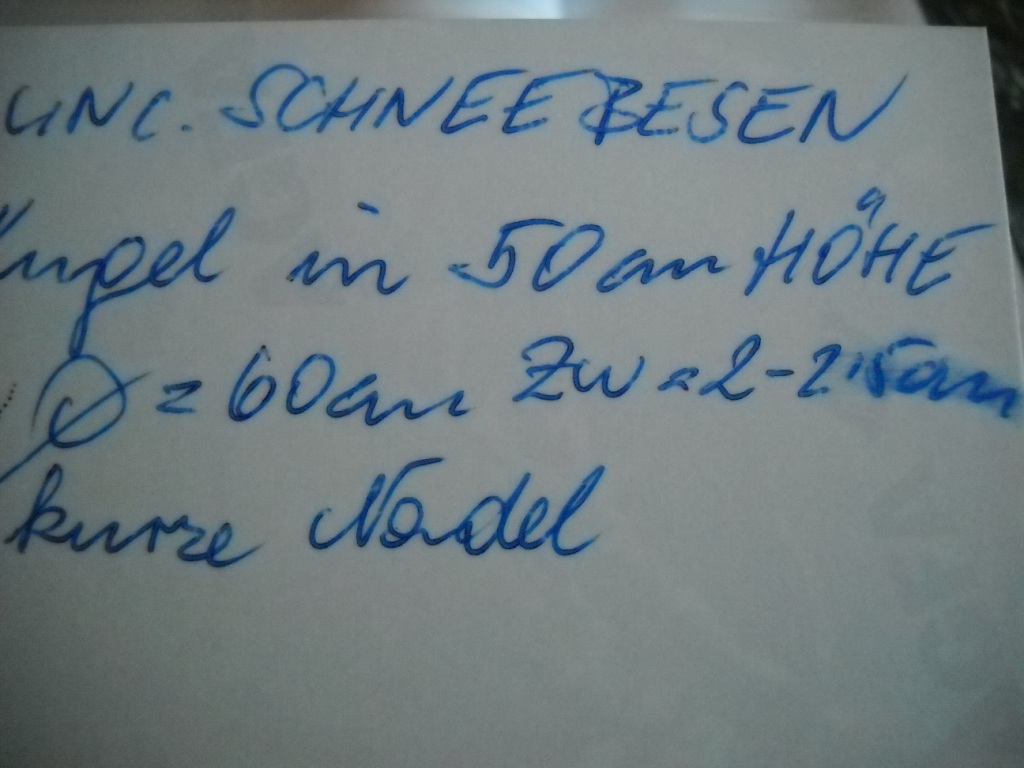 UNC. SCHNEEBESEN
Kugel in 50cm HÖHE
Ø = 60cm Zw = 2-2,5cm
kurze Nadel